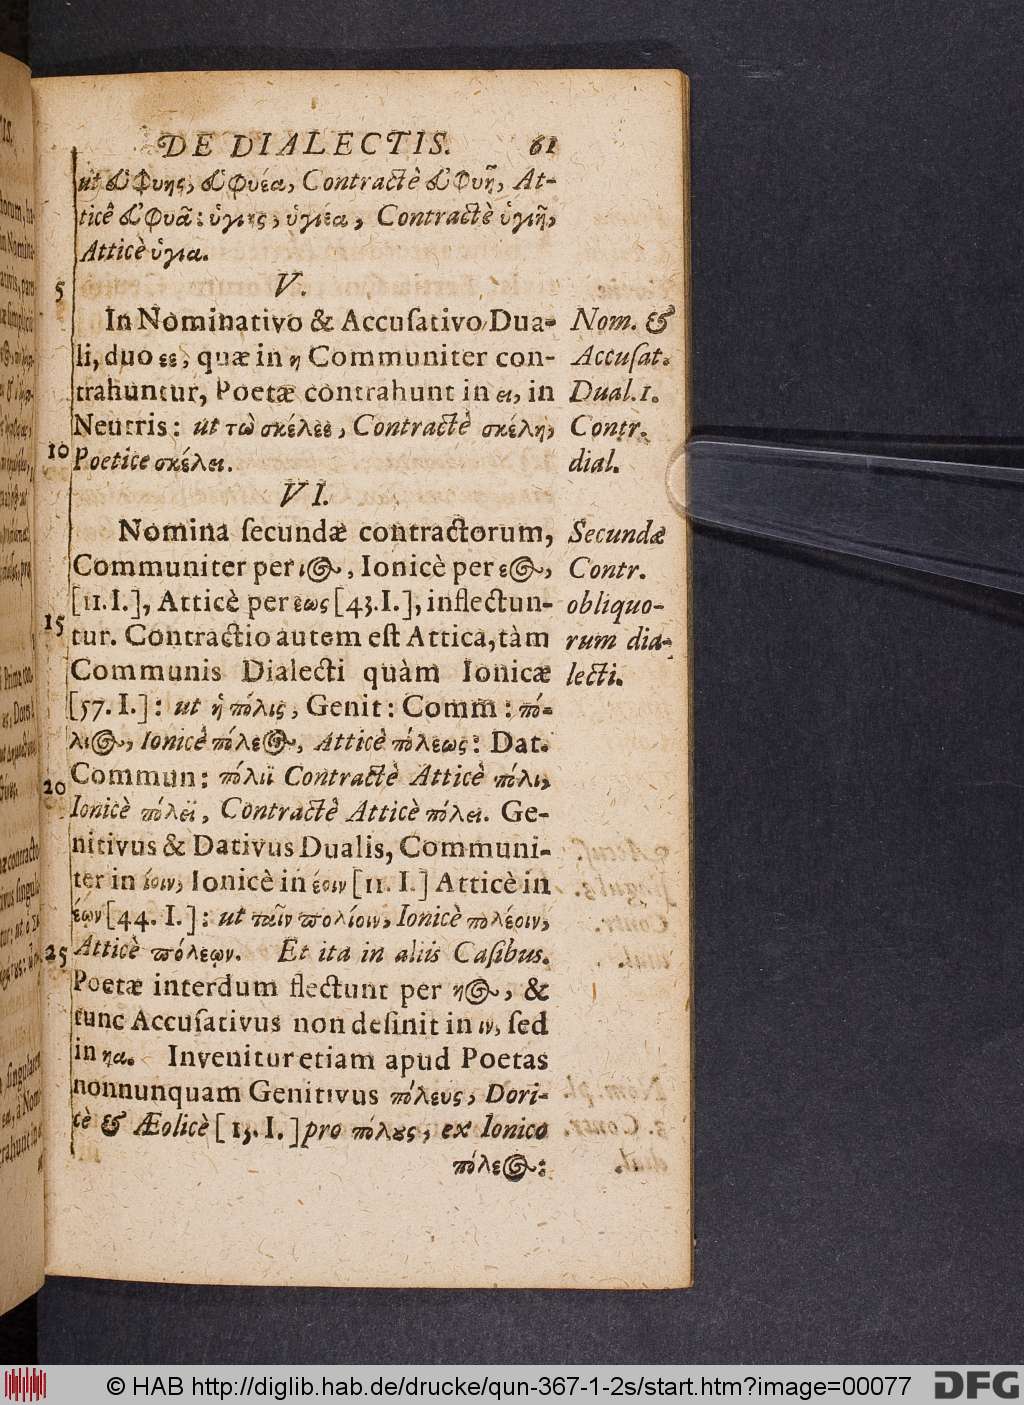 DE DIALECTIS. 61
ut εὐφυης, εὐφυέα, Contractè εὐφυῆ, At-
ticê εὐφυᾶ: ὑγιης, ὑγιέα, Contractè ὑγιῆ,
Atticè ὑγια.
V.
5
In Nominativo & Accuſativo Dua-
li, duo εε, quæ in η Communiter con-
trahuntur, Poetæ contrahunt in ει, in
Neutris: ut τὼ σκέλεε, Contractè σκέλη,
10 Poetice σκέλει.
Nom. &
Accuſat.
Dual. 1.
Contr.
dial.
VI.
Nomina ſecundæ contractorum,
Communiter per ιος, Ionicè per εος,
[11. I.], Atticè per εως [43. I.], inflectun-
15 tur. Contractio autem eſt Attica, tàm
Communis Dialecti quàm Ionicæ
[57. I.]: ut ἡ πόλις, Genit: Comm: πό-
λιος, Ionicè πόλεος, Atticè πόλεως: Dat.
Commun: πόλιϊ Contractè Atticè πόλι,
20 Ionicè πόλεϊ, Contractè Atticè πόλει. Ge-
nitivus & Dativus Dualis, Communi-
ter in ίοιν, Ionicè in έοιν [11. I.] Atticè in
έῳν [44. I.]: ut ταῖν πολίοιν, Ionicè πολέοιν,
25 Atticè πόλεῳν. Et ita in aliis Caſibus.
Poetæ interdum flectunt per ηος, &
tunc Accuſativus non deſinit in ιν, ſed
in ηα. Invenitur etiam apud Poetas
nonnunquam Genitivus πόλευς, Dori-
cè & Æolicè [13. I.] pro πόλους, ex Ionico
πόλεος:
Secundæ
Contr.
obliquo-
rum dia-
lecti.
© HAB http://diglib.hab.de/drucke/qun-367-1-2s/start.htm?image=00077
DFG